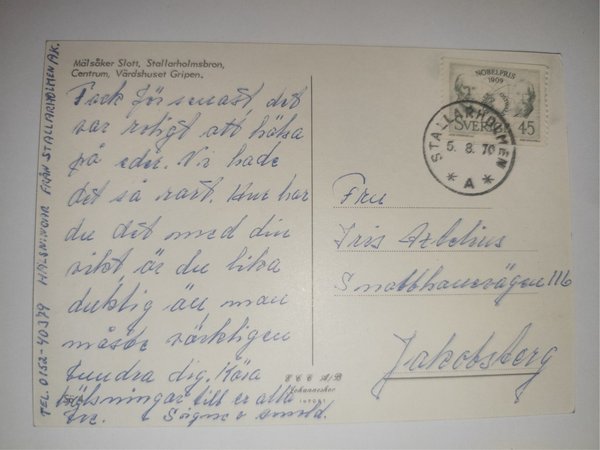 Mälsåker Slott, Stallarholmsbron,
Centrum, Värdshuset Gripen.
Tack för senast det
var roligt att hälsa
på eder. Vi hade
det så rart. Hur har
du det med din
vikt är du lika
duktig än man
måste värkligen
beundra dig. Kära
hälsningar till er alla
tre.
TEL. 0152-40379 HÄLSNINGAR FRÅN STALLARHOLMEN A.K.
NOBELPRIS
1909
SVERIGE 45
STALLARHOLMEN
5. 8. 70
* A *
Fru
Iris Azelius
116
Jakobsberg
E C C A/B
Johanneshov
IMPORT